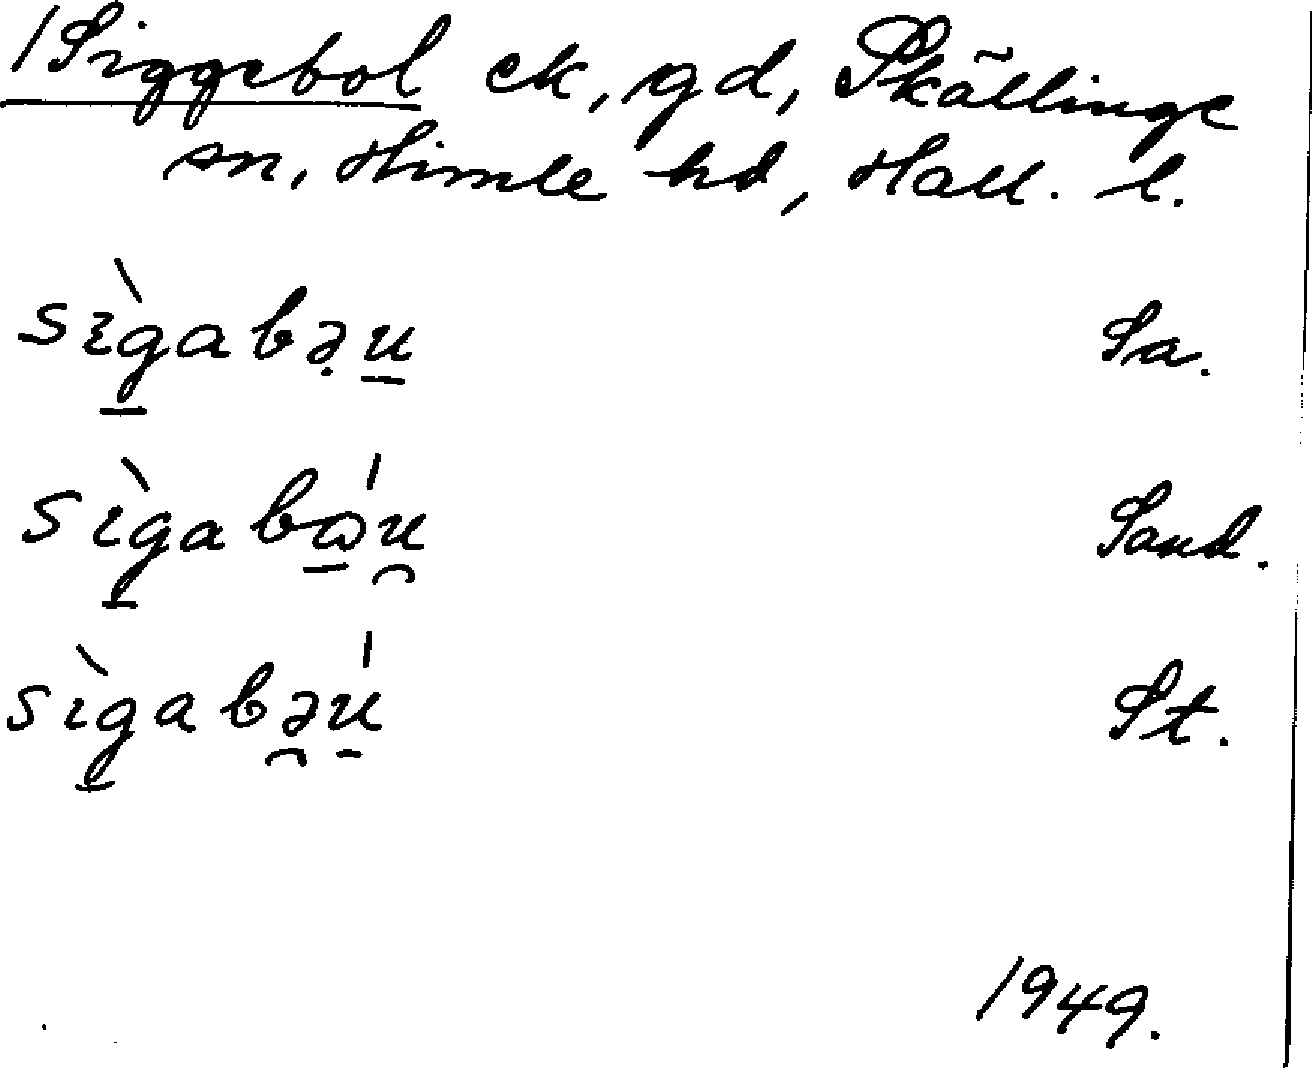 /Siggebol ek, gd, Skällinge
sn, Himle hd, Hall. l.
sìg̲abə̣u̲ Sa.
sìg̲abώ̲u̯ Sand.
sìg̲abə̯ú̲ St.
1949.